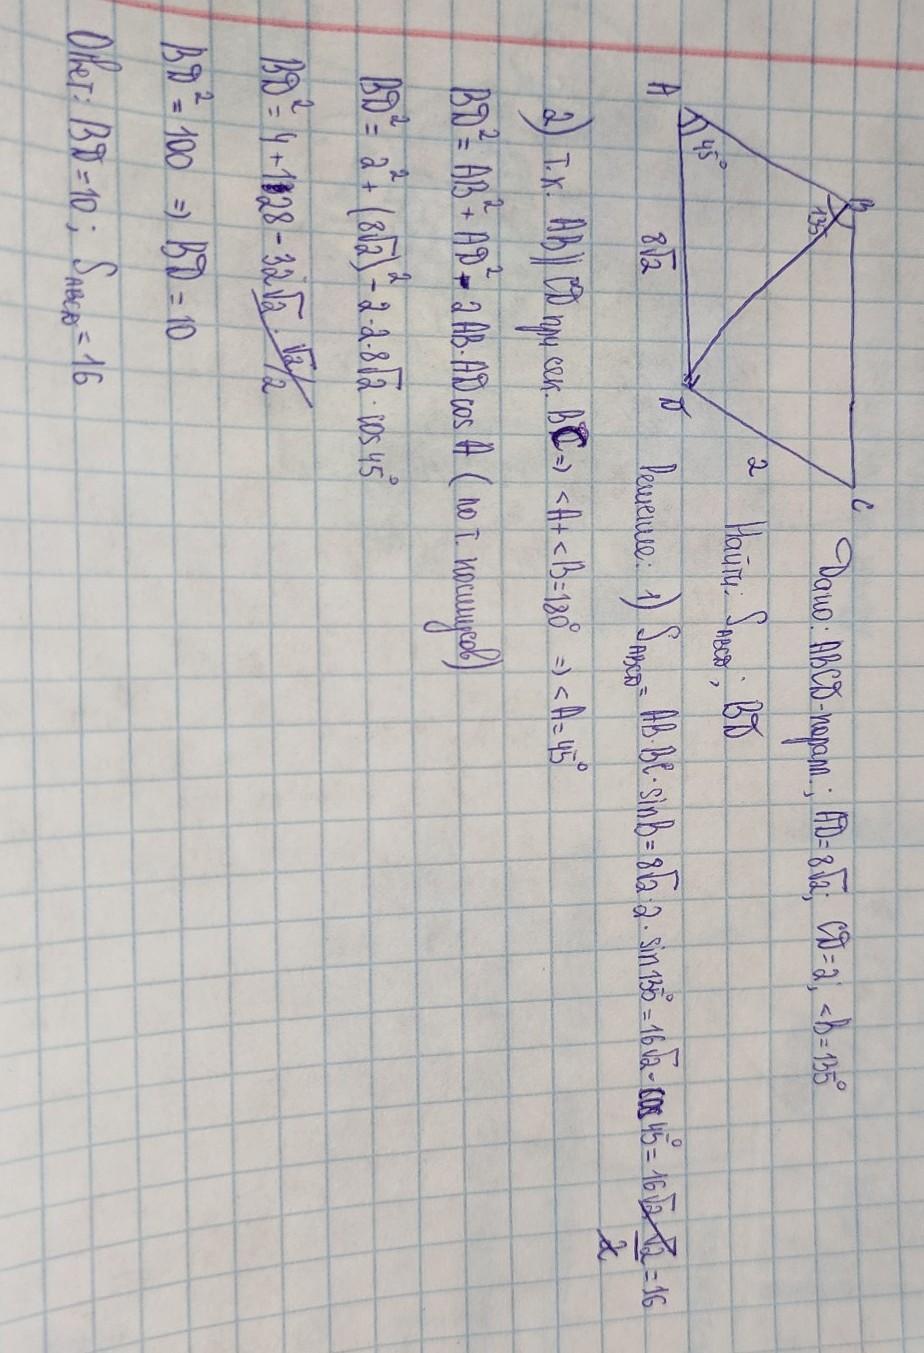 A
45°
8√2
B
135°
D
2
C
Дано: ABCD-парал.; AD=8√2; CD=2; <B=135°
Найти: S_ABCD; BD
Решение: 1) S_ABCD = AB·BC·sinB=8√2·2·sin135°=16√2·cos45°=16√2·√2/2=16
2) т.к. AB||CD при сек. BC=> <A+<B=180° => <A=45°
BD²=AB²+AD²-2AB·ADcosA (по т. косинусов)
BD²= 2²+(8√2)²-2·2·8√2·cos45°
BD²=4+128-32√2·√2/2
BD²=100 => BD=10
Ответ: BD=10; S_ABCD=16